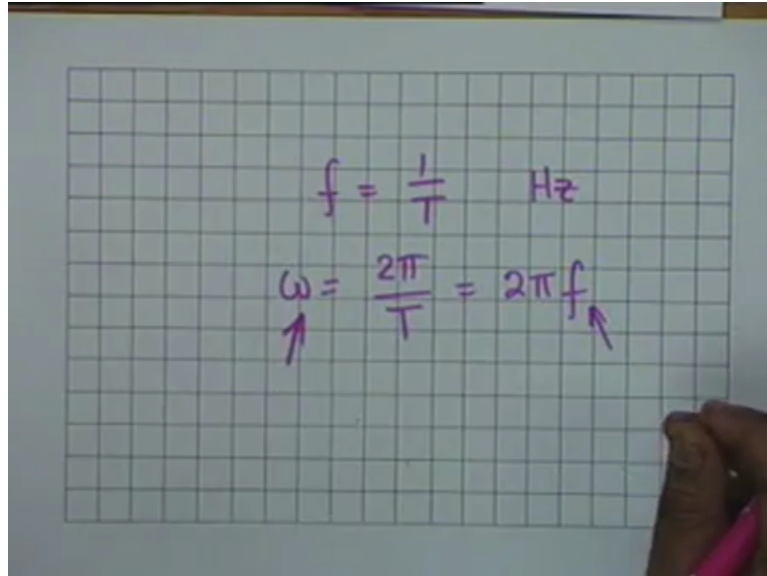 f = 1/T Hz
ω = 2π/T = 2πf